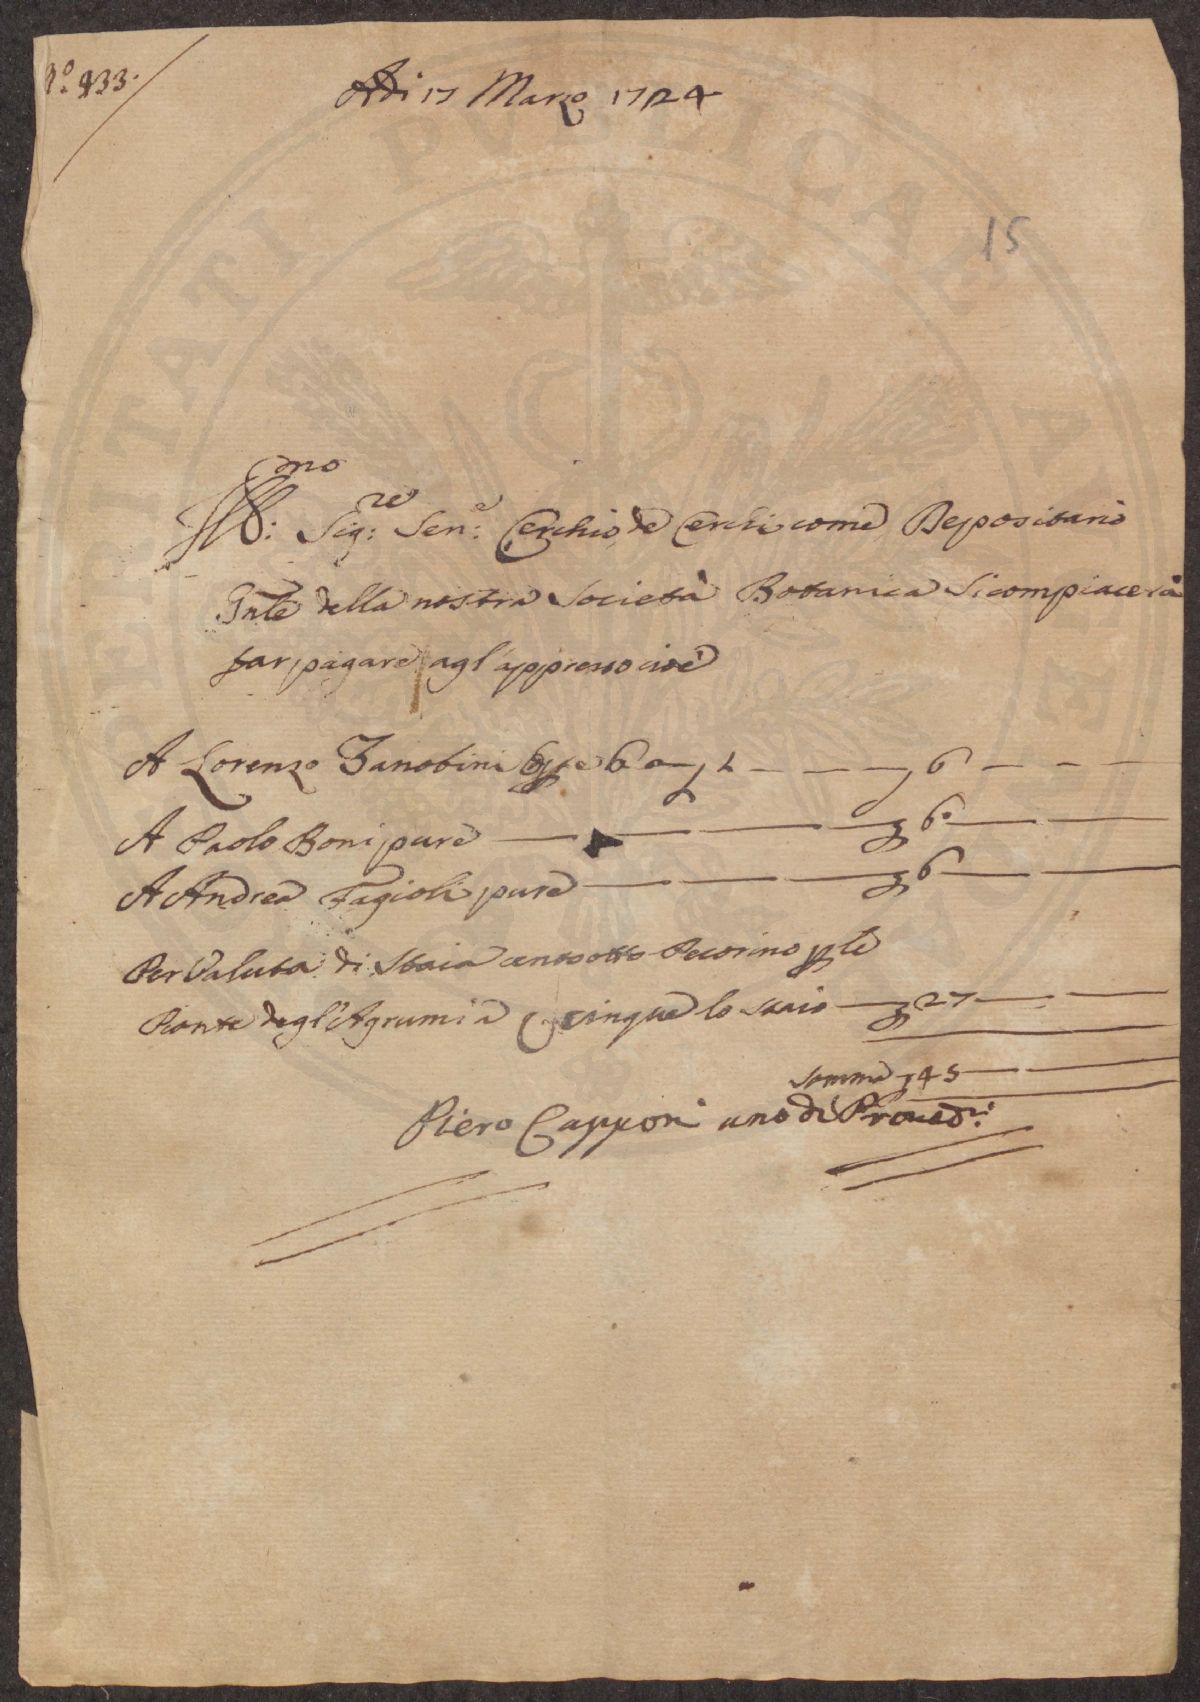 N.º 433.
Adi 17 Marzo 1724
15
Ill:mo Sig:re Sen:e Cerchio de Cerchi come Depositario
Gnle della nostra Società Botanica Si compiacerà
far pagare agl'appresso cioè
A Lorenzo Zanobini 6 — 6 —
A Paolo Boni pure — 6 —
A Andrea Fagioli pure — 6 —
Per Valuta di Staia cento otto Pecorino p le
Piante degl'Agrumi a cinque lo staio — 27 —
Somma 45 —
Piero Capponi uno di Proved:ri
PUBLICAE